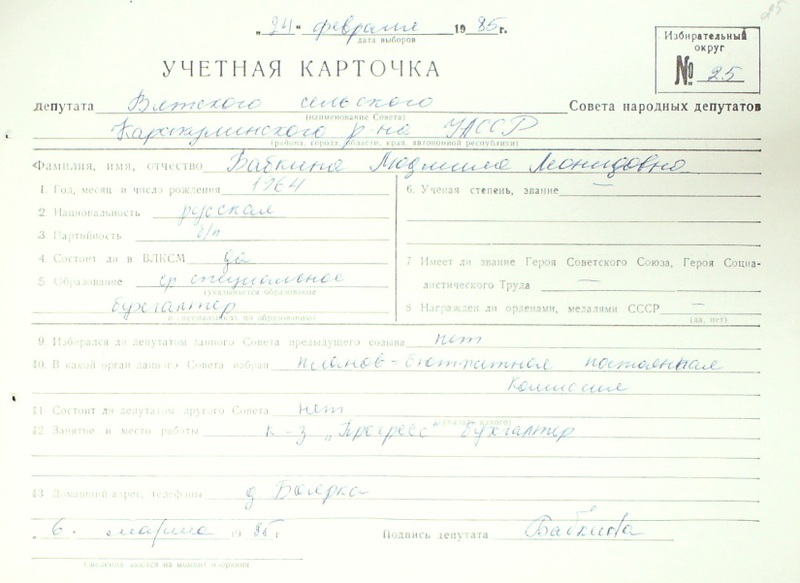 25
„24“ февраля 1985 г.
дата выборов
Избирательный
округ
№ 25
УЧЕТНАЯ КАРТОЧКА
депутата Вятского сельского Совета народных депутатов
(наименование Совета)
Каракулинского р-на УАССР
(района, города, области, края, автономной республики)
Фамилия, имя, отчество Бабкина Людмила Леонидовна
1. Год, месяц и число рождения 1964
2. Национальность русская
3. Партийность б/п
4. Состоит ли в ВЛКСМ да
5. Образование ср специальное
(указывается образование
бухгалтер
и специальность по образованию)
6. Ученая степень, звание —
7. Имеет ли звание Героя Советского Союза, Героя Социа-
листического Труда —
8. Награжден ли орденами, медалями СССР —
(да, нет)
9. Избирался ли депутатом данного Совета предыдущего созыва нет
10. В какой орган данного Совета избран планов-бюджетная постоянная
комиссия
11. Состоит ли депутатом другого Совета нет
(указать какого)
12. Занятие и место работы к-з „Прогресс" бухгалтер
13. Домашний адрес, телефоны д Боярка
„6. марта 1985 г.
Подпись депутата Бабкина
Сведения даются на момент избрания